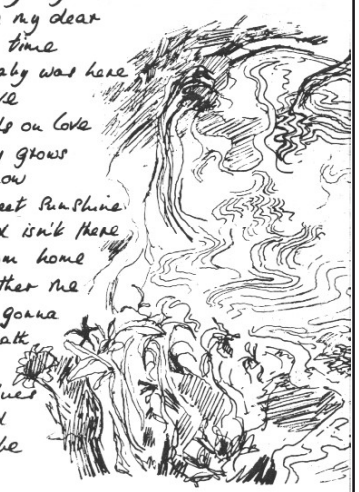 my dear
time
aby was here
ve
ds on love
grows
ow
eet Sunshine
d isn't there
om home
ther me
gonna
ath
lues
d
he